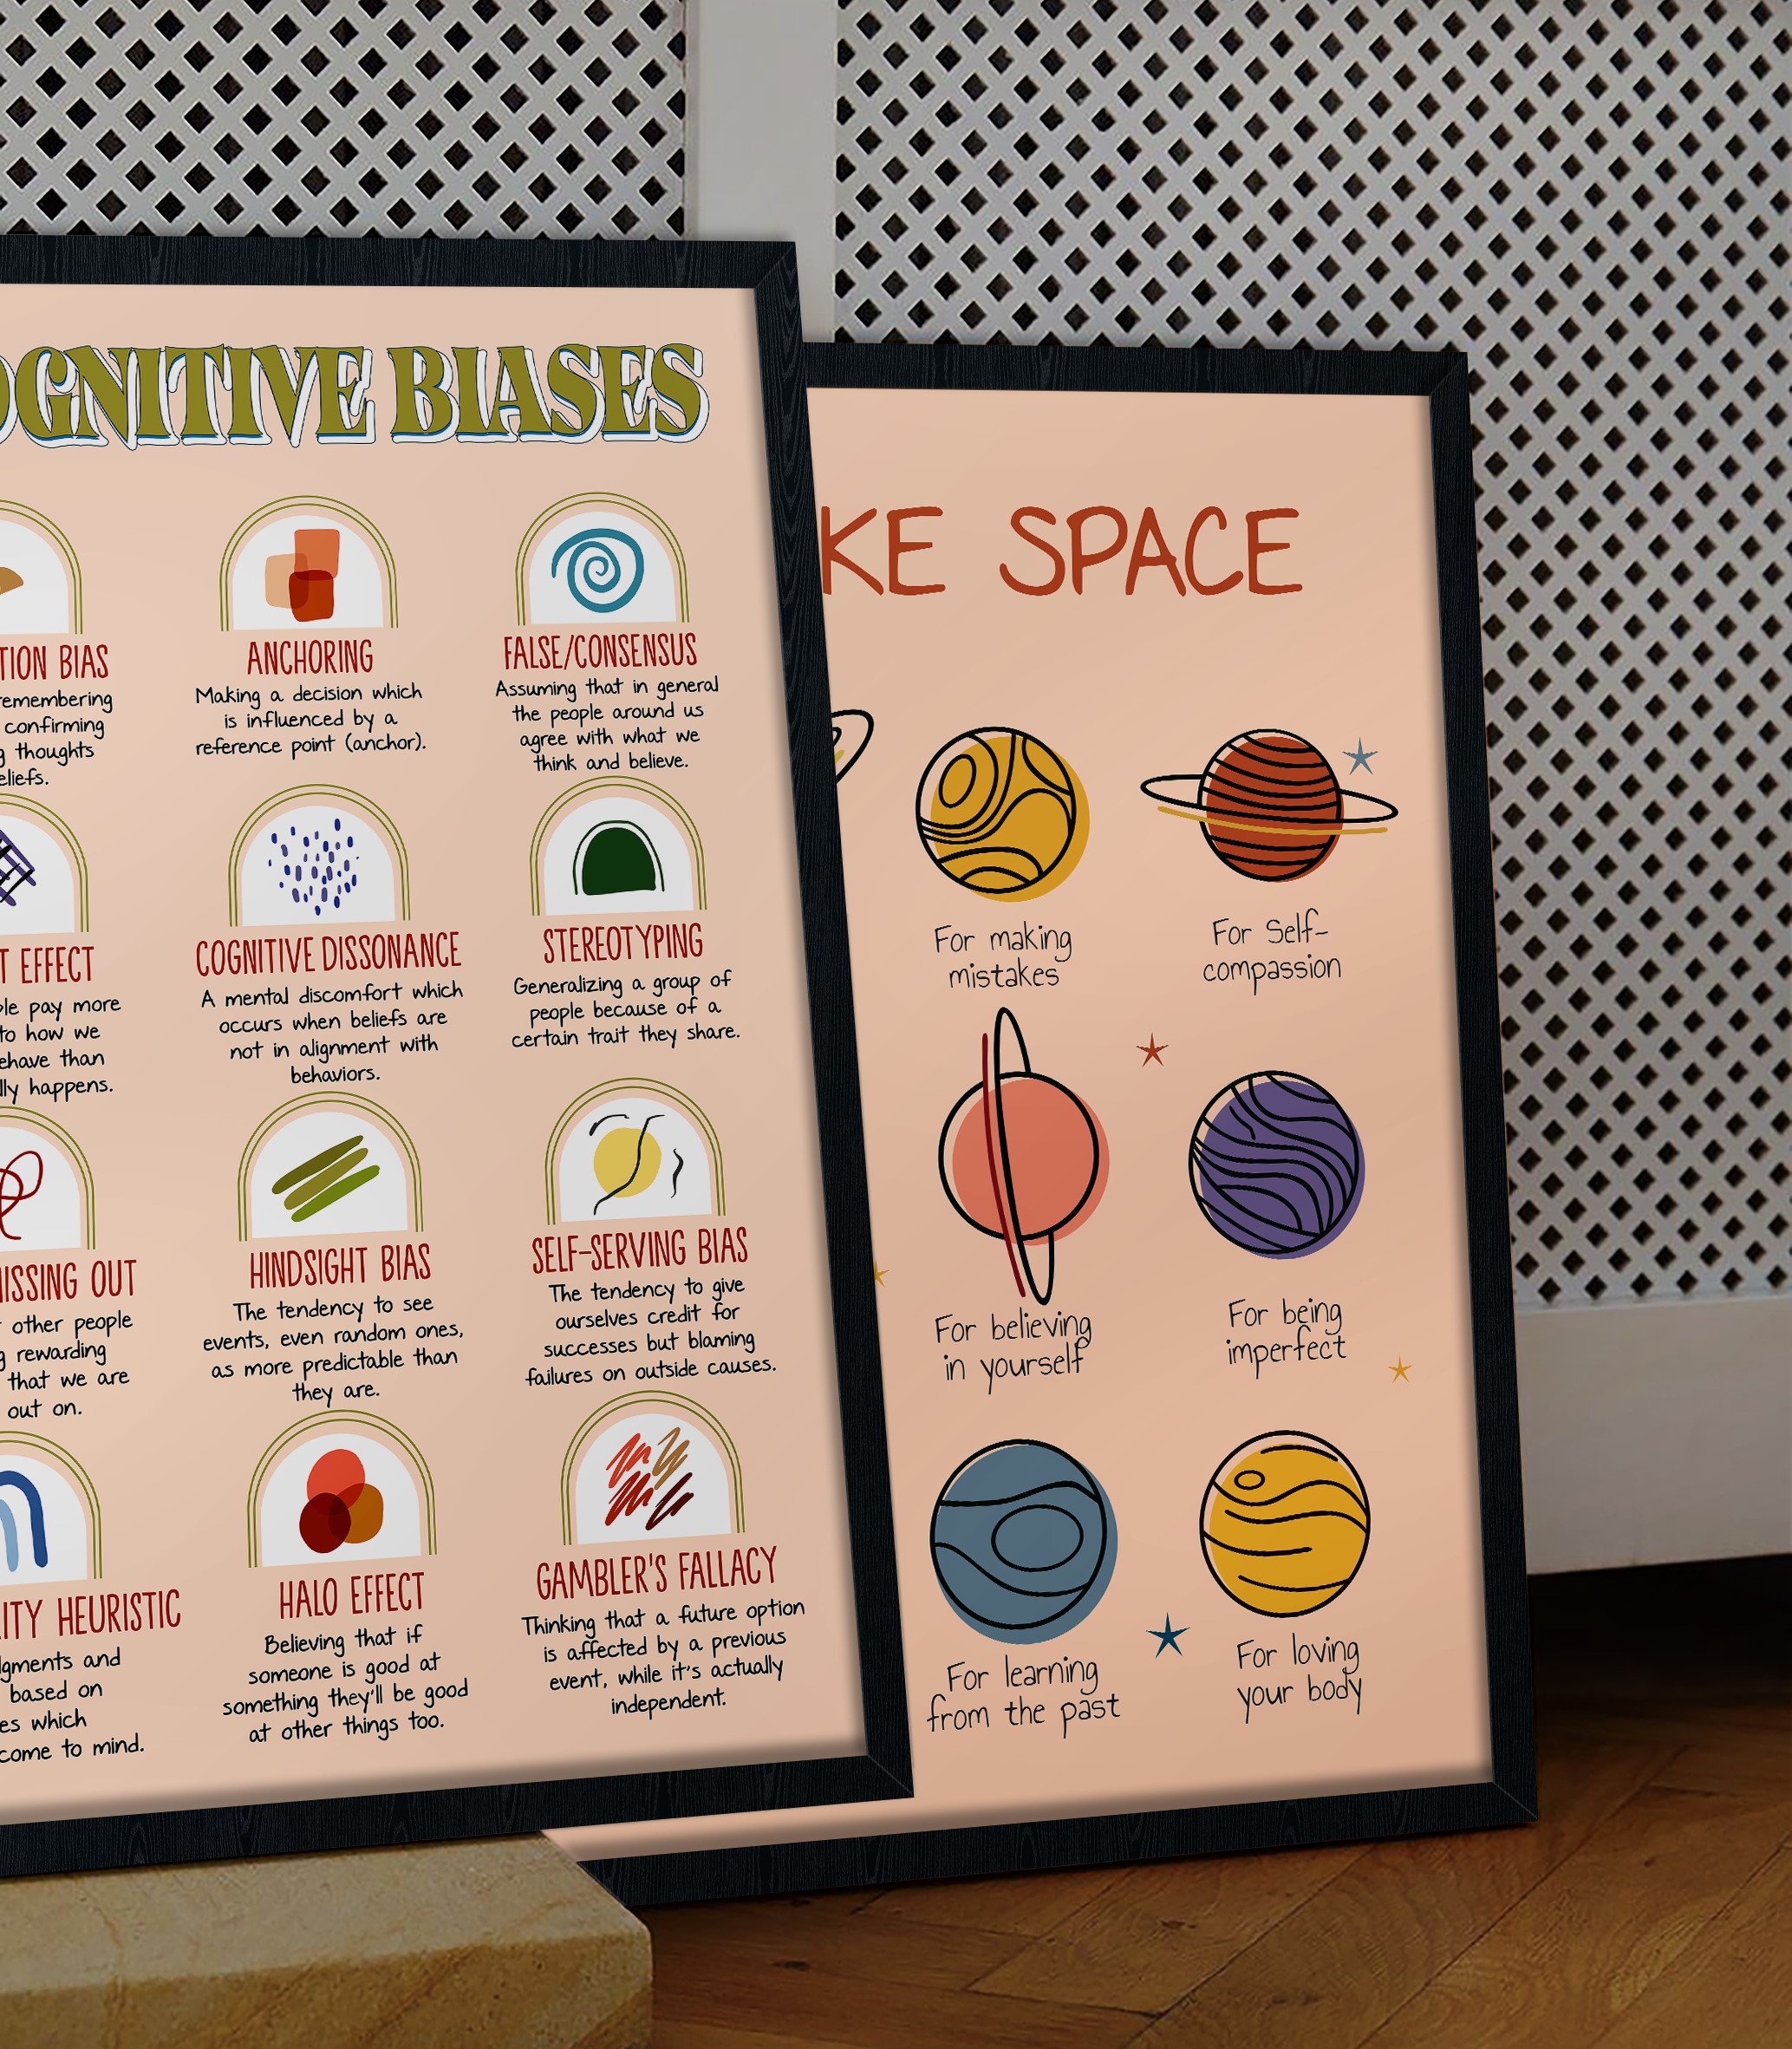 OGNITIVE BIASES
TION BIAS
remembering
confirming
thoughts
eliefs.
ANCHORING
Making a decision which
is influenced by a
reference point (anchor).
FALSE/CONSENSUS
Assuming that in general
the people around us
agree with what we
think and believe.
T EFFECT
ple pay more
to how we
ehave than
lly happens.
COGNITIVE DISSONANCE
A mental discomfort which
occurs when beliefs are
not in alignment with
behaviors.
STEREOTYPING
Generalizing a group of
people because of a
certain trait they share.
ISSING OUT
other people
g rewarding
that we are
out on.
HINDSIGHT BIAS
The tendency to see
events, even random ones,
as more predictable than
they are.
SELF-SERVING BIAS
The tendency to give
ourselves credit for
successes but blaming
failures on outside causes.
ITY HEURISTIC
dgments and
based on
es which
come to mind.
HALO EFFECT
Believing that if
someone is good at
something they'll be good
at other things too.
GAMBLER'S FALLACY
Thinking that a future option
is affected by a previous
event, while it's actually
independent.
KE SPACE
For making
mistakes
For Self-
compassion
For believing
in yourself
For being
imperfect
For learning
from the past
For loving
your body